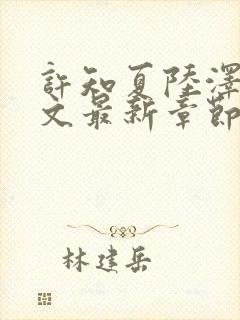 許知夏陸澤
文最新章節
林建岳